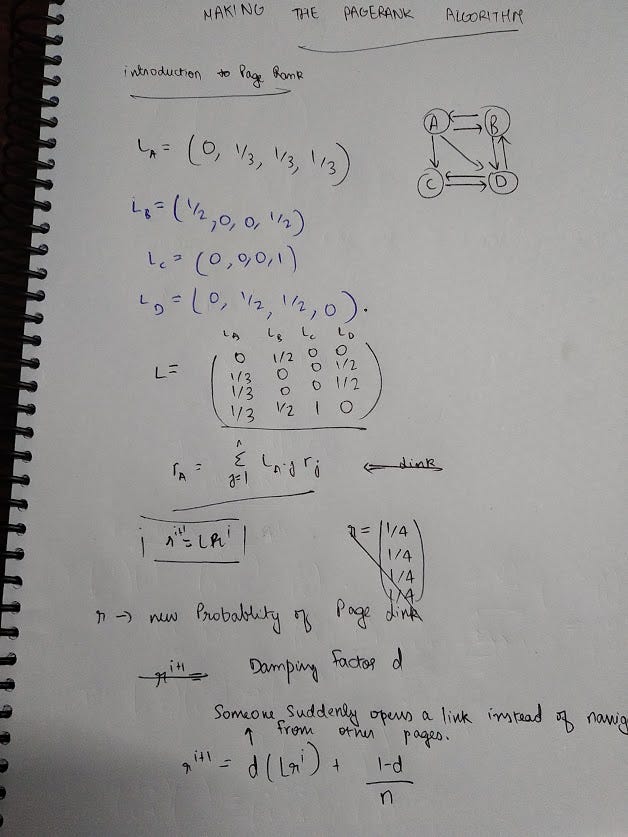 MAKING THE PAGERANK ALGORITHM
introduction to Page Rank
A B
C D
L_A = (0, 1/3, 1/3, 1/3)
L_B = (1/2, 0, 0, 1/2)
L_C = (0, 0, 0, 1)
L_D = (0, 1/2, 1/2, 0).
L_A L_B L_C L_D
0 1/2 0 0
L = 1/3 0 0 1/2
1/3 0 0 1/2
1/3 1/2 1 0
r_A = n Σ j=1 L_A,j r_j ← link
r^{i+1} = L r^i
r = 1/4
1/4
1/4
1/4
r → new Probablity of Page link
r^{i+1} =
Damping factor d
Someone suddenly opens a link instead of navig
↑ from other pages.
r^{i+1} = d (L r^i) + 1-d / n